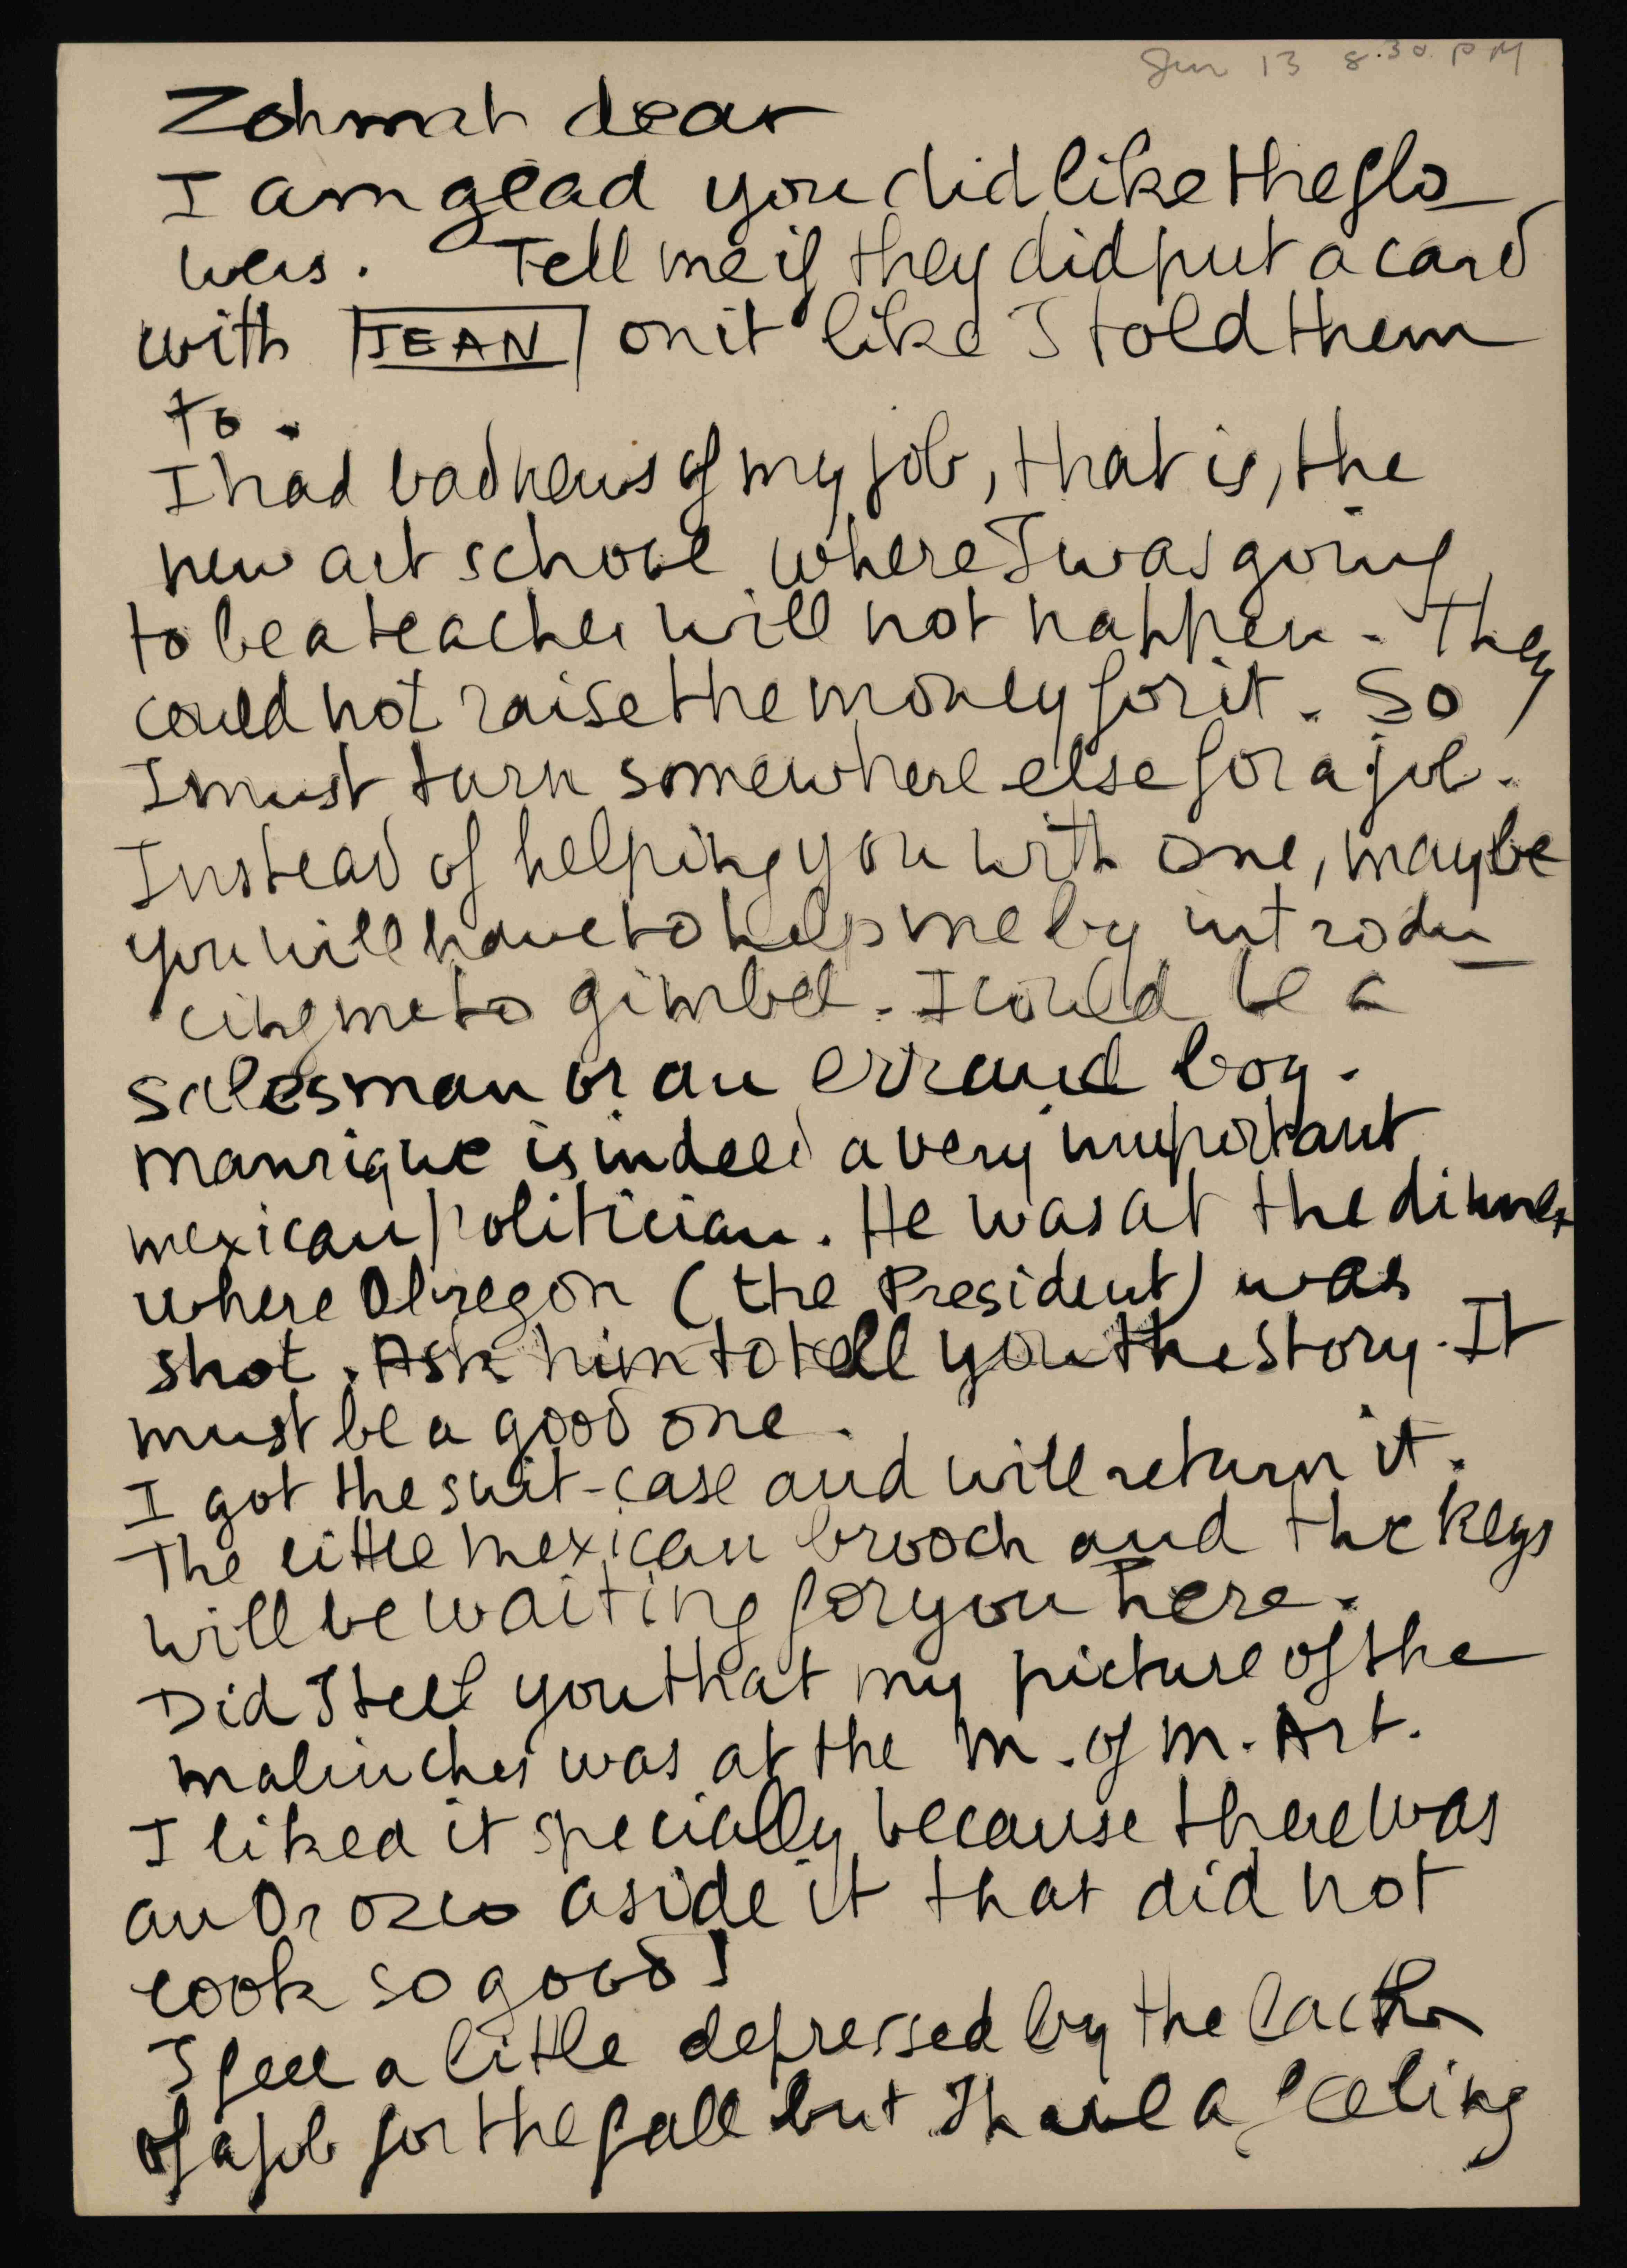 Jun 13 8.30. PM
Zohmah dear
I am glad you did like the flo-
wers. Tell me if they did put a card
with JEAN on it like I told them
to.
I had bad news of my job, that is, the
new art school where I was going
to be a teacher will not happen. They
could not raise the money for it. So
I must turn somewhere else for a job.
Instead of helping you with one, maybe
you will have to help me by introdu-
cing me to gimbel. I could be a
salesman or an errand boy.
Manrique is indeed a very important
mexican politician. He was at the dinner
where Obregon (the President) was
shot. Ask him to tell you the story. It
must be a good one.
I got the suit-case and will return it.
The little mexican brooch and the keys
will be waiting for you here.
Did I tell you that my picture of the
malinches was at the M. of M. Art.
I liked it specially because there was
an Orozco aside it that did not
look so good!
I feel a little depressed by the lack
of a job for the fall but I have a feeling